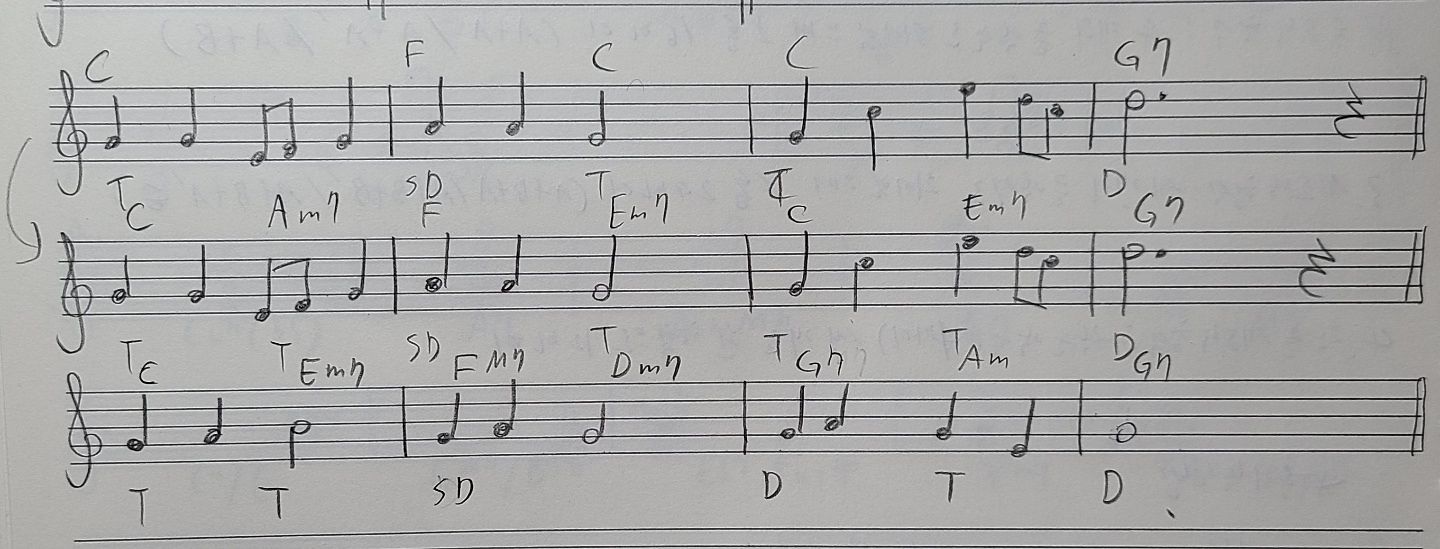 C F C C G7
T SD T T D
C Am7 F Em7 C Em7 G7
T T SD T T T D
C Em7 FM7 Dm7 G7 Am G7
T T SD D T D